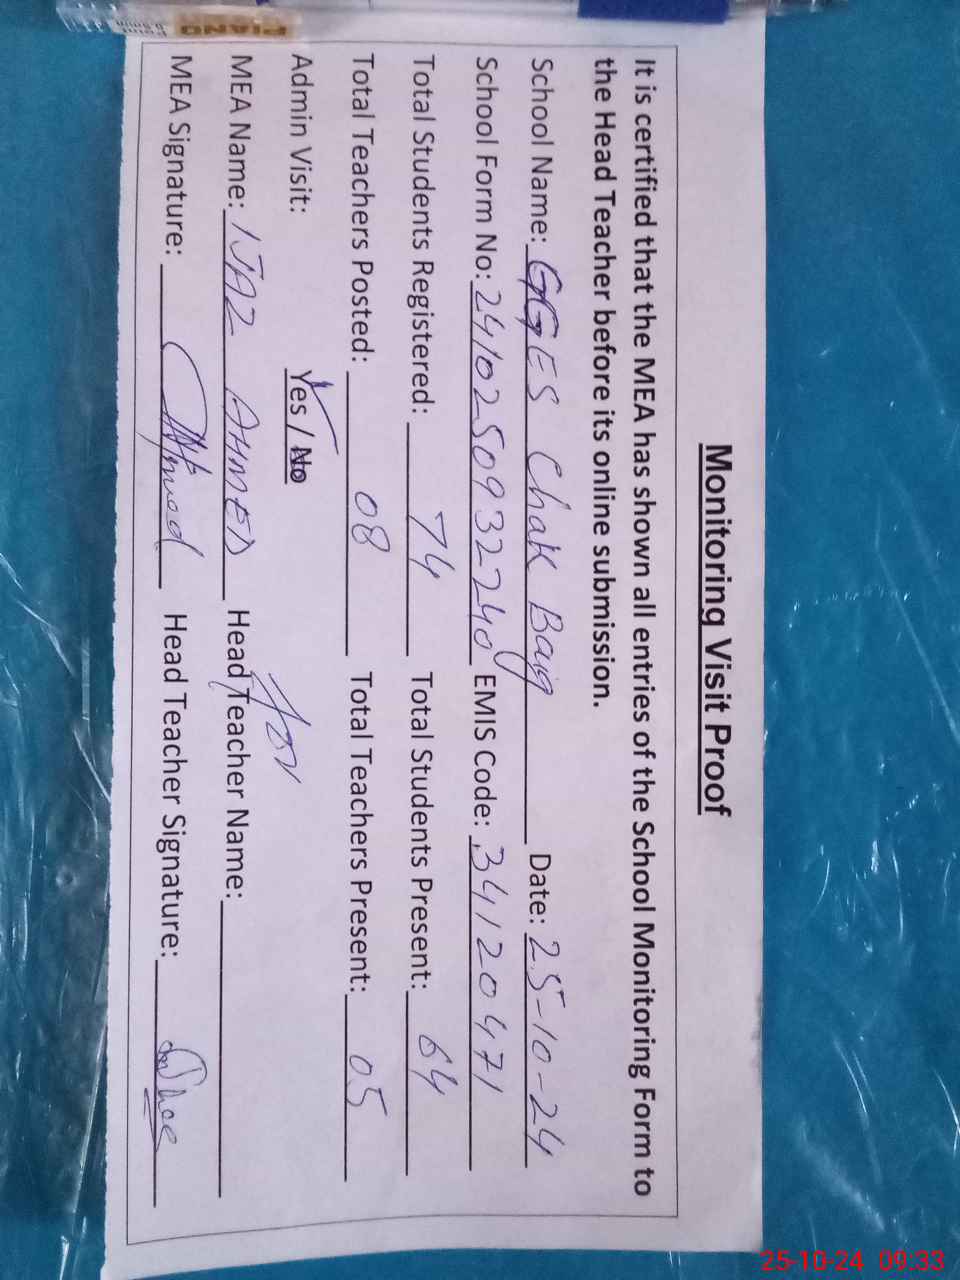 PIANO
Monitoring Visit Proof
It is certified that the MEA has shown all entries of the School Monitoring Form to
the Head Teacher before its online submission.
School Name: GGES Chak Baig Date: 25-10-24
School Form No: 24102509322740 EMIS Code: 34120471
Total Students Registered: 74 Total Students Present: 64
Total Teachers Posted: 08 Total Teachers Present: 05
Admin Visit: Yes / No
MEA Name: IJAZ AHMED Head Teacher Name:
MEA Signature: Ahmed Head Teacher Signature:
25-10-24 09:33